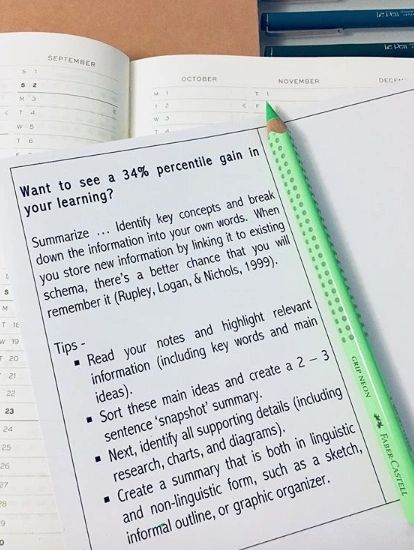 SEPTEMBER
S 1
S 2
M 3
T 4
W 5
OCTOBER
M 1
T 2
NOVEMBER
T 1
Le Pen
Le Pen
Want to see a 34% percentile gain in
your learning?
Summarize ... Identify key concepts and break
down the information into your own words. When
you store new information by linking it to existing
schema, there's a better chance that you will
remember it (Rupley, Logan, & Nichols, 1999).
Tips -
▪ Read your notes and highlight relevant
information (including key words and main
ideas).
▪ Sort these main ideas and create a 2 – 3
sentence 'snapshot' summary.
▪ Next, identify all supporting details (including
research, charts, and diagrams).
▪ Create a summary that is both in linguistic
and non-linguistic form, such as a sketch,
informal outline, or graphic organizer.
T 18
W 19
T 20
F 21
22
23
GRIP NEON
FABER-CASTELL